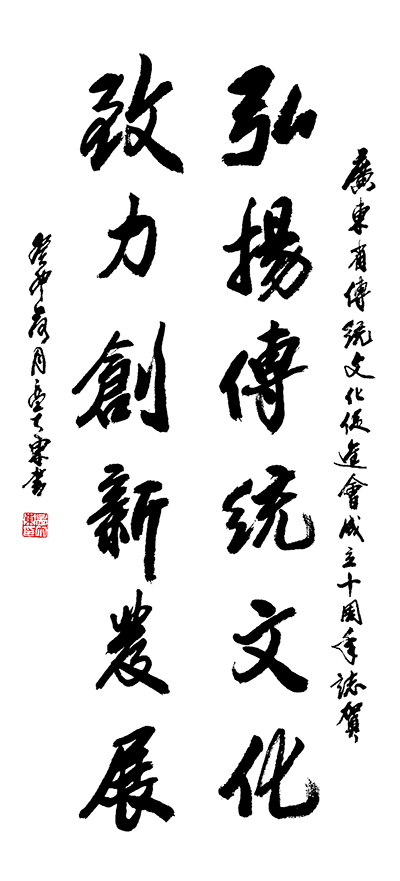 廣東省傳統文化促進會成立十周年誌賀
弘揚傳統文化
致力創新發展
癸卯月東書